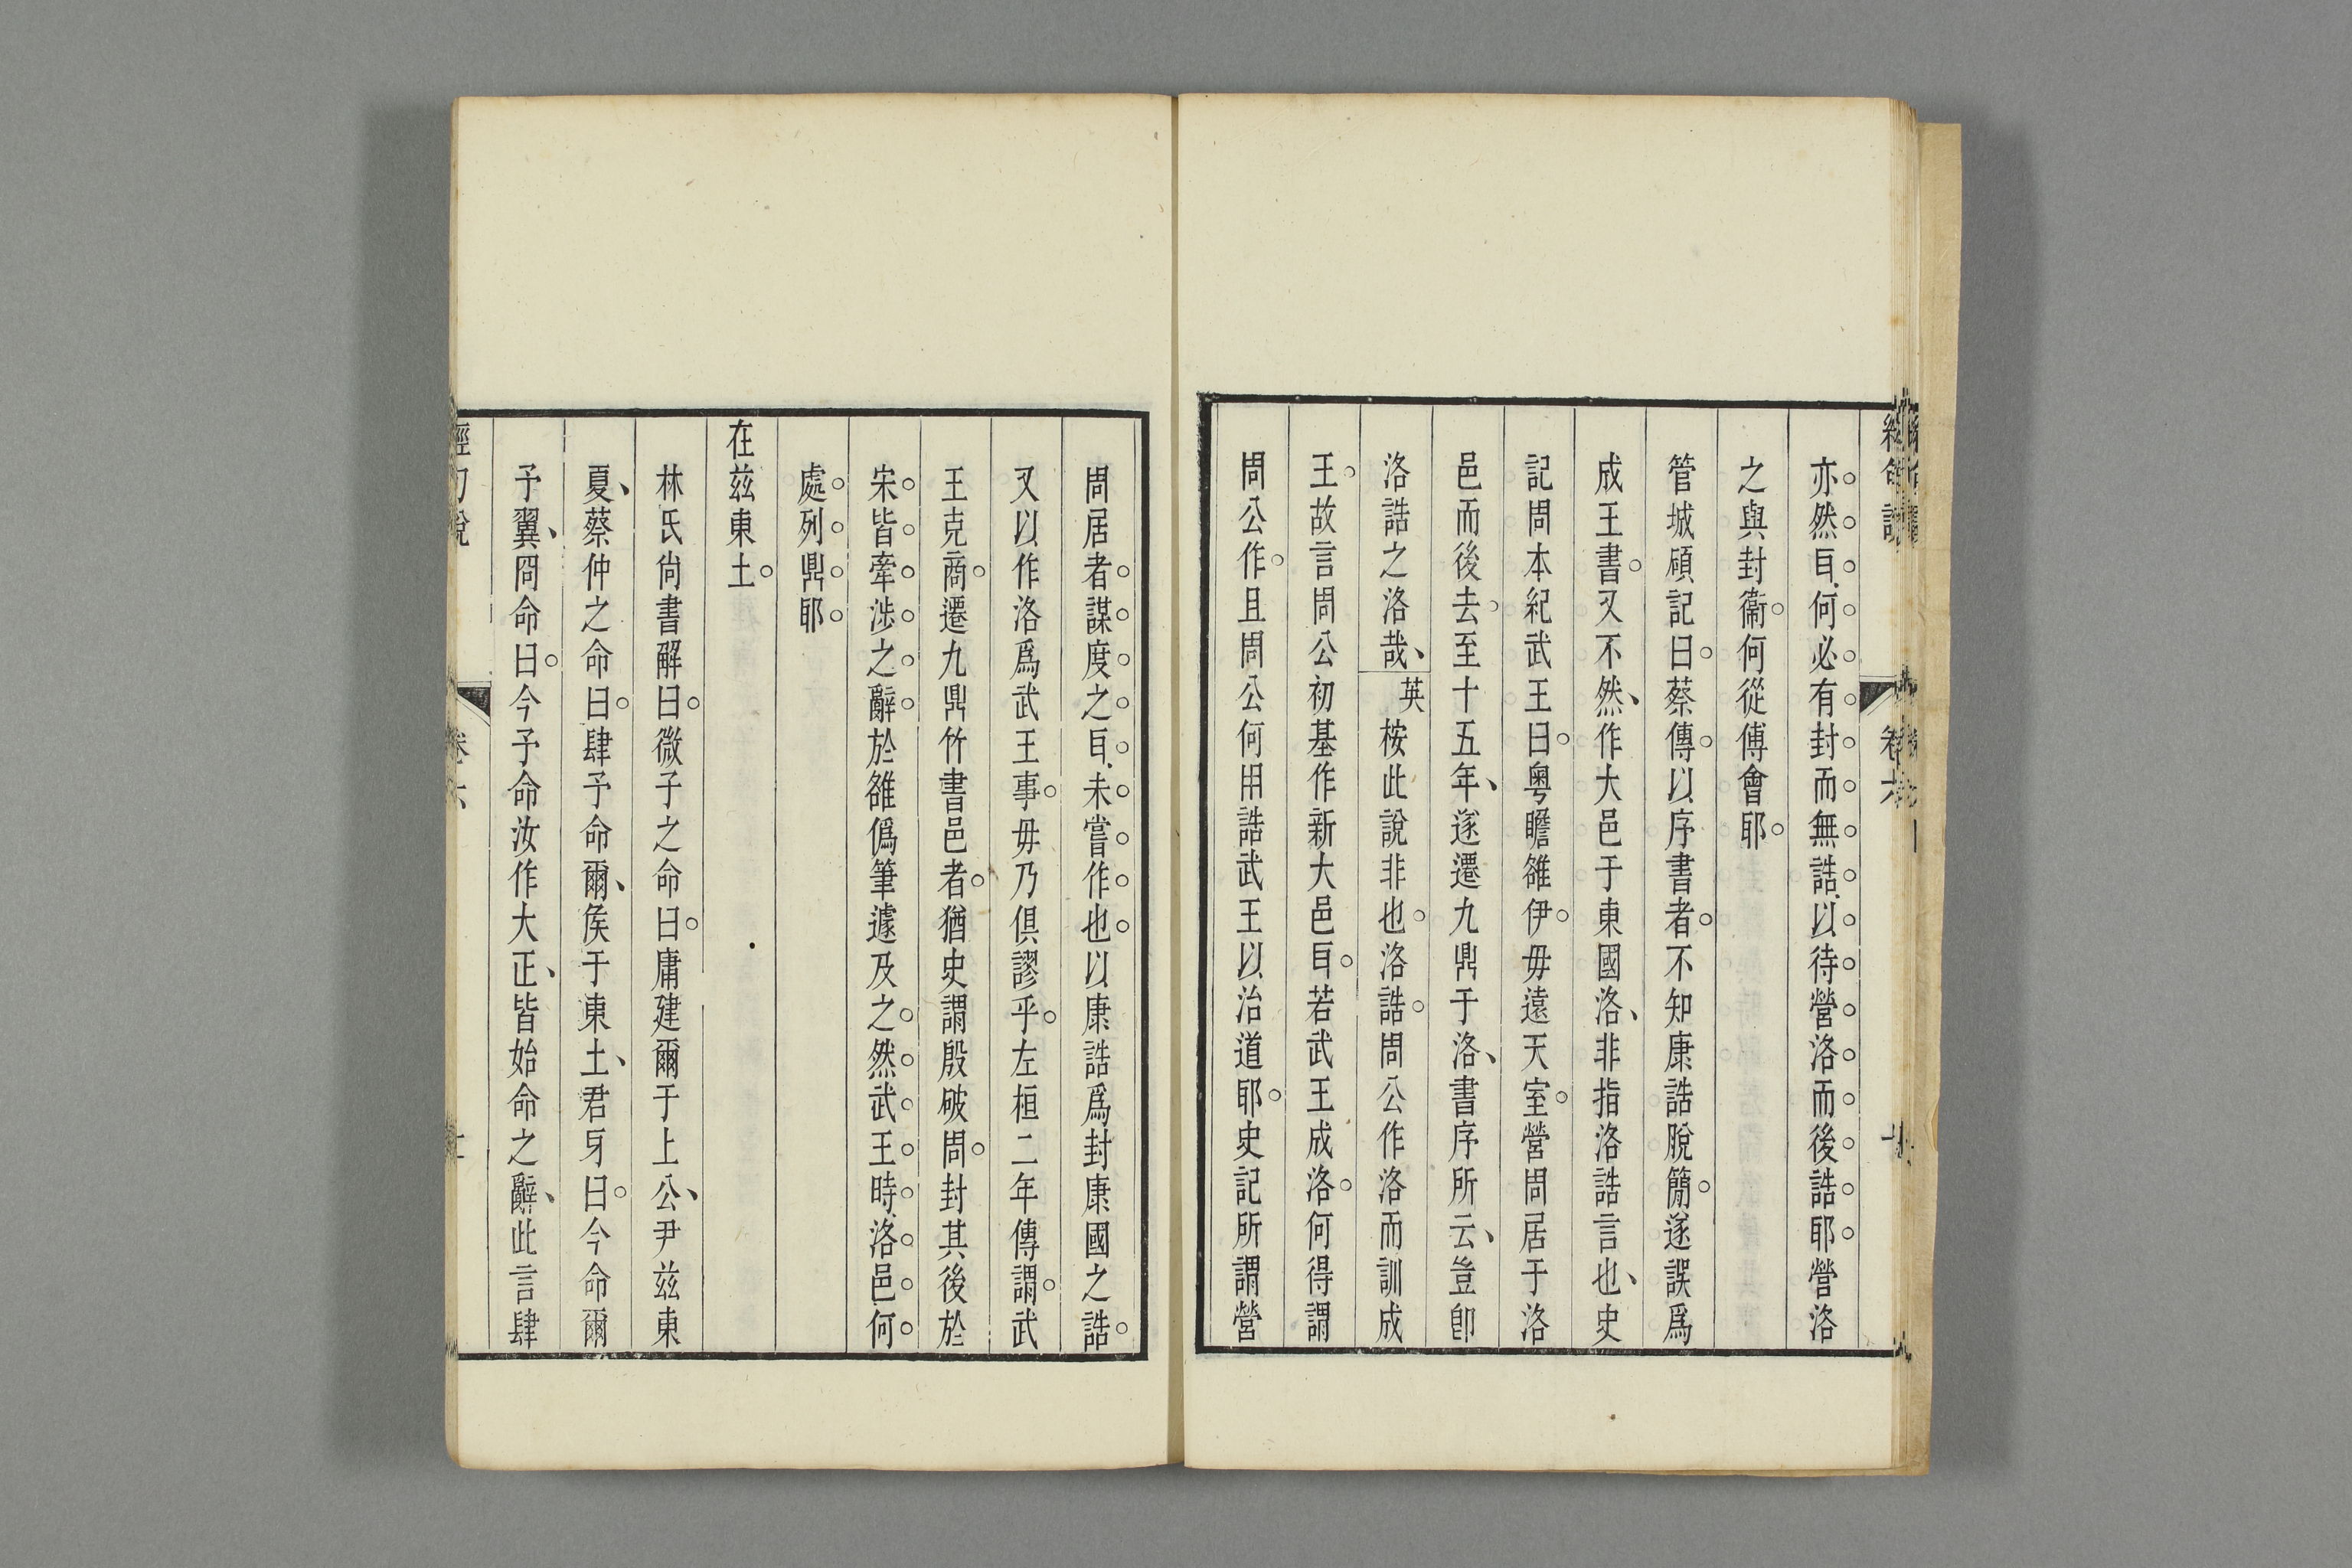 亦然耳何必有封而無誥以待營洛而後誥耶營洛
之與封衞何從傅會耶
管城碩記曰蔡傳以序書者不知康誥脫簡遂誤爲
成王書又不然作大邑于東國洛非指洛誥言也史
記周本紀武王曰粵瞻雒伊毋遠天室營周居于洛
邑而後去至十五年遂遷九鼎于洛書序所云豈卽
洛誥之洛哉英桉此說非也洛誥周公作洛而訓成
王故言周公初基作新大邑耳若武王成洛何得謂
周公作且周公何用誥武王以治道耶史記所謂營
周居者謀度之耳未嘗作也以康誥爲封康國之誥
又以作洛爲武王事毋乃俱謬乎左桓二年傳謂武
王克商遷九鼎竹書邑者猶史謂殷破周封其後於
宋皆牽涉之辭於雒僞筆遽及之然武王時洛邑何
處列鼎耶
在兹東土
林氏尙書解曰微子之命曰庸建爾于上公尹兹東
夏蔡仲之命曰肆予命爾侯于東土君牙曰今命爾
予翼冏命曰今予命汝作大正皆始命之辭此言肆
卷六